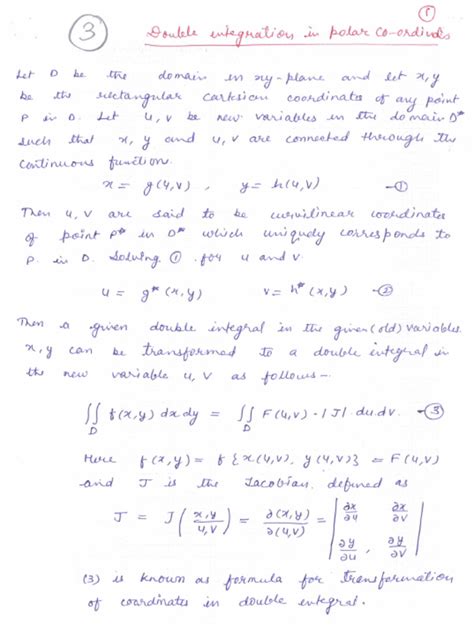 ①
③ Double integration in polar co-ordinates
Let D be the domain in xy-plane and let x, y
be the rectangular cartesian coordinates of any point
P in D. Let u, v be new variables in the domain D*
such that x, y and u, v are connected through the
continuous function.
x = g(u,v) , y = h(u,v) —①
Then u, v are said to be curvilinear coordinates
of point P* in D* which uniquely corresponds to
P. in D. Solving ① for u and v.
u = g*(x,y) v = h*(x,y) —②
Then a given double integral in the given (old) variables
x, y can be transformed to a double integral in
the new variable u, v as follows –
∬_D f(x,y) dx dy = ∬_D F(u,v) · |J| du.dv. —③
Here f(x,y) = f{x(u,v), y(u,v)} = F(u,v)
and J is the Jacobian defined as
J = J(x,y / u,v) = ∂(x,y)/∂(u,v) = | ∂x/∂u ∂x/∂v |
| ∂y/∂u , ∂y/∂v |
(3) is known as formula for transformation
of coordinates in double integral.